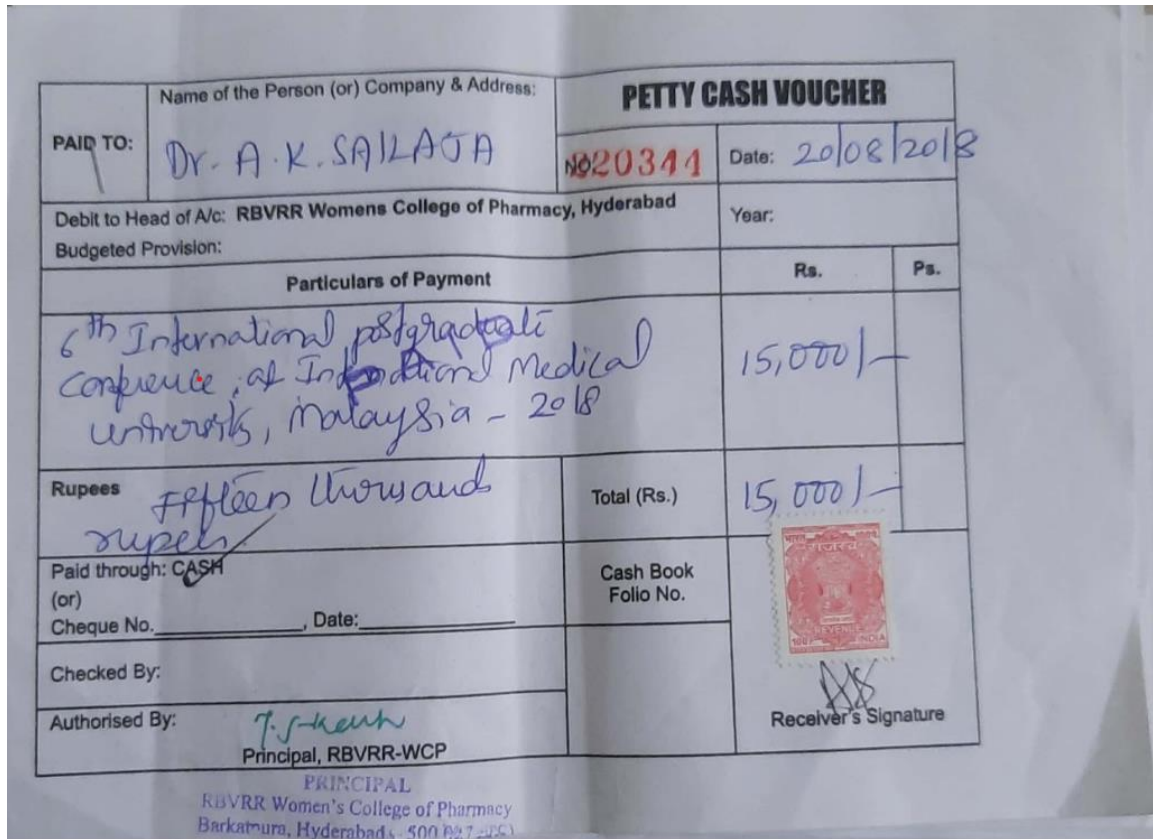 Name of the Person (or) Company & Address:
PETTY CASH VOUCHER
PAID TO:
Dr. A. K. SAILAJA
No. 20344
Date: 20/08/2018
Debit to Head of A/c: RBVRR Womens College of Pharmacy, Hyderabad
Year:
Budgeted Provision:
Particulars of Payment
Rs.
Ps.
6th International postgraduate
Conference, at International Medical
University, Malaysia - 2018
15,000/-
Rupees Fifteen thousands
rupees.
Total (Rs.)
15,000/-
Paid through: CASH
(or)
Cheque No.____________, Date:______________
Cash Book
Folio No.
भारत
राजस्व
REVENUE
INDIA
Checked By:
Authorised By:
Receiver's Signature
Principal, RBVRR-WCP
PRINCIPAL
RBVRR Women's College of Pharmacy
Barkatpura, Hyderabad - 500